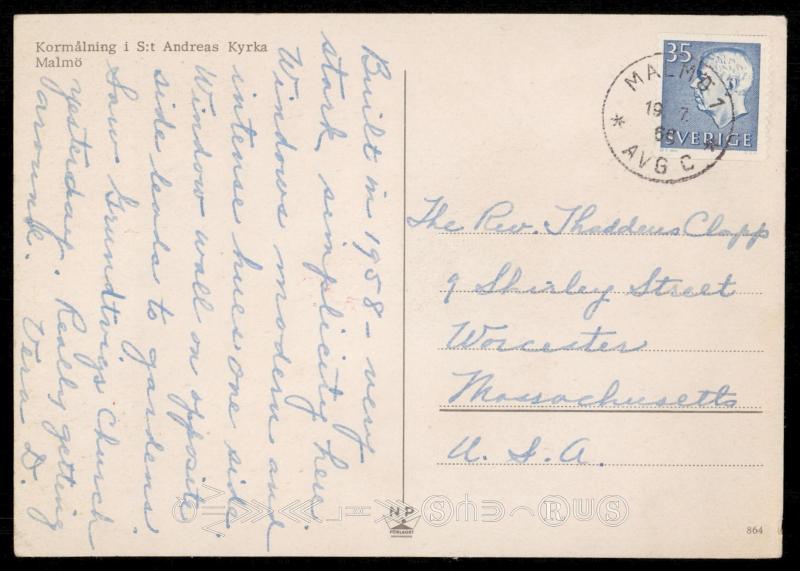 Kormålning i S:t Andreas Kyrka
Malmö
Built in 1958 - very
stark simplicity here.
Windows modern and
intense hues one side.
Window wall on opposite
side leads to gardens
Saw Grundtvigs Church
yesterday. Really getting
around. Vera D.
35
SVERIGE
MALMÖ 1
19. 7.
AVG C
The Rev. Thaddeus Clapp
9 Shirley Street
Worcester
Massachusetts
U. S. A.
NP
FÖRLAGET
864